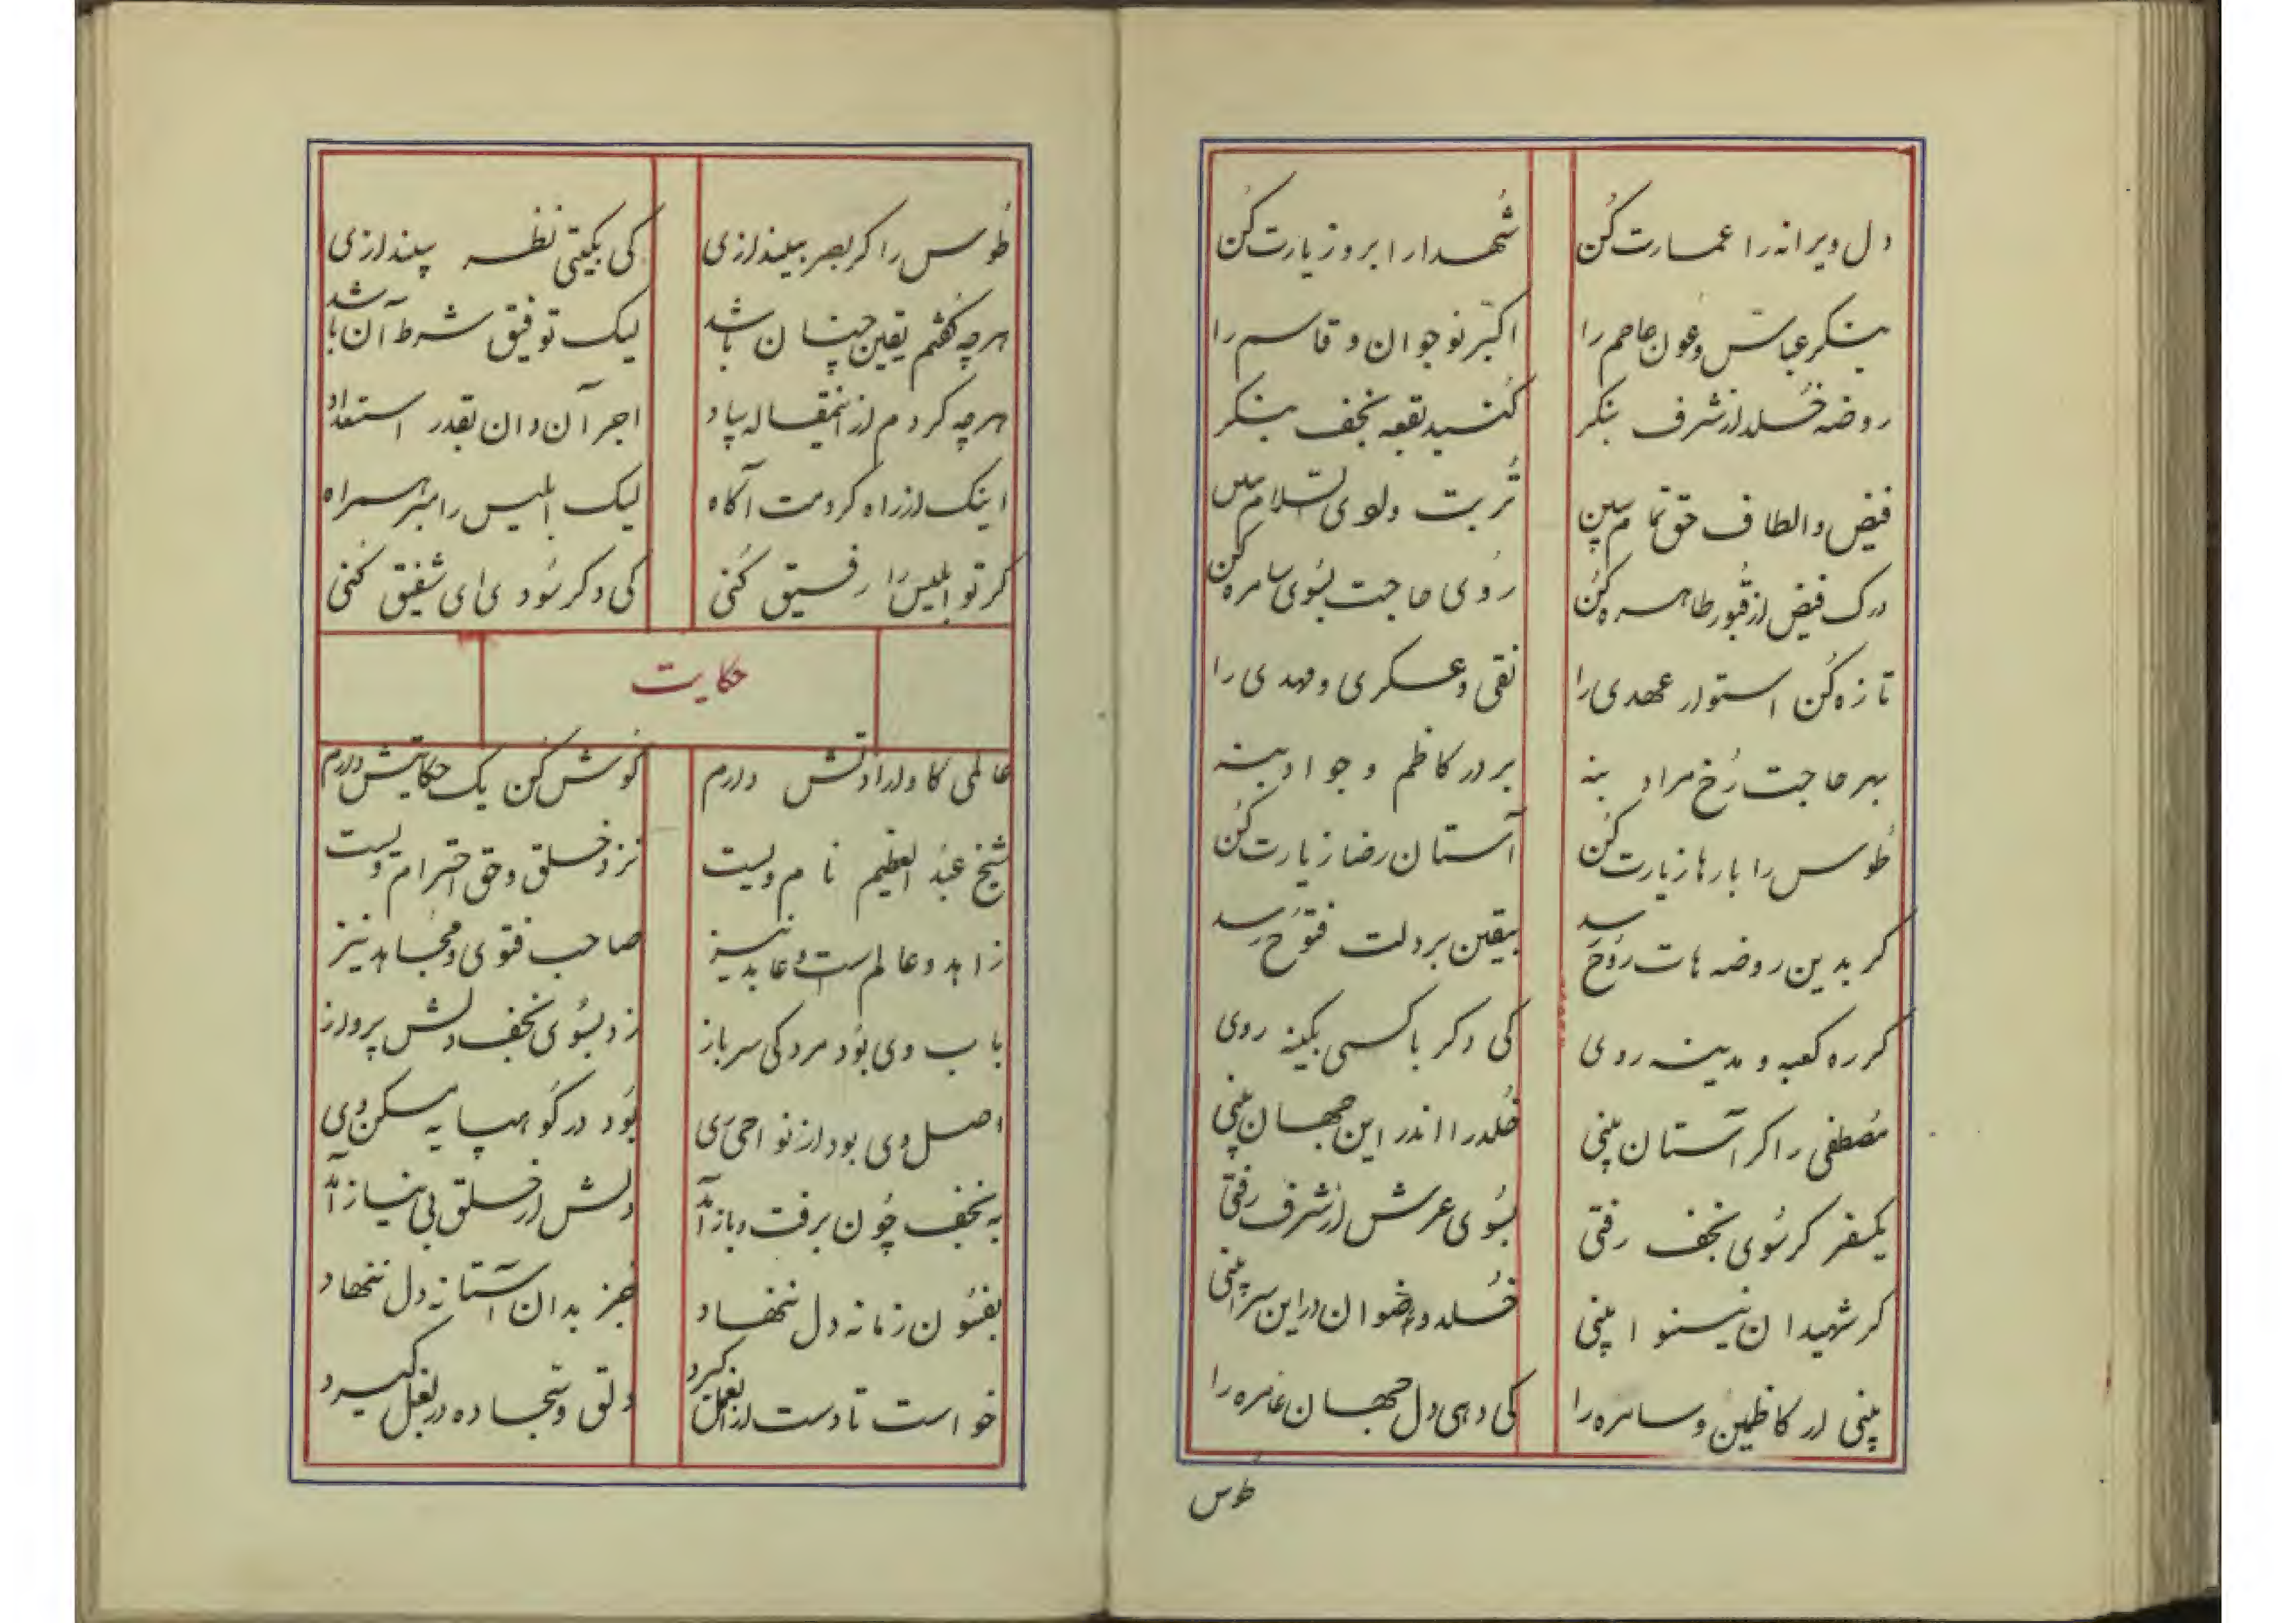 دل ویرانه را عمارت کن شهدا را برو زیارت کن
بنگر عباس و عون و عاصم را اکبر نوجوان و قاسم را
روضه خلد از شرف بنگر گنبد بقعه نجف بنگر
فیض و الطاف حق تمام ببین تربت وادی السلام ببین
درک فیض از قبور طاهره کن روی حاجت بسوی سامره کن
تازه کن استوار عهدی را نقی و عسکری و مهدی را
بهر حاجت رخ مراد بنه بر در کاظم و جواد بنه
طوس را بارها زیارت کن آستان رضا زیارت کن
کر بدین روضه هات روح رسد بیقین بر دلت فتوح رسد
کر ره کعبه و مدینه روی کی دکر با کسی بکینه روی
مصطفی را کر آستان بینی خلد را اندر این جهان بینی
یکسفر کر سوی نجف رفتی بسوی عرش از شرف رفتی
کر شهیدان نینوا بینی خلد و رضوان در این سرا بینی
بینی ار کاظمین و سامره را کی دهی دل جهان عامره را
طوس
طوس را کر بصر بیندازی کی بکیتی نظر بیندازی
هرچه گفتم یقین چنان باشد لیک توفیق شرط آن باشد
هرچه کردم از اینمقاله بیاد اجر آن دان بقدر استعداد
اینک از راه کردمت آکاه لیک ابلیس را مبر همراه
کر تو ابلیس را رفیق کنی کی دکر سودی ای شفیق کنی
حکایت
عالمی کاو ارادتش دارم کوش کن یک حکایتش دارم
شیخ عبد العظیم نام ویست نزد خلق و حق احترام ویست
زاهد و عالم است و عابد نیز صاحب فتوی و مجاهد نیز
باب وی بود مردکی سرباز زد بسوی نجف دلش پرواز
اصل وی بود از نواحی ری بود در کوهپایه مسکن وی
به نجف چون برفت و باز آمد دلش از خلق بی نیاز آمد
بفسون زمانه دل ننهاد بجز بدان آستانه دل ننهاد
خواست تا دست از امل کیرد دلق و سجاده در بغل کیرد